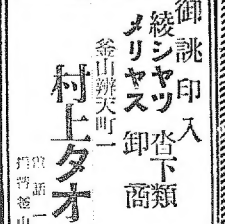 御誂印入
綾シヤツ 沓下類
メリヤス 卸商
釜山辨天町一
村上タオ
電話一